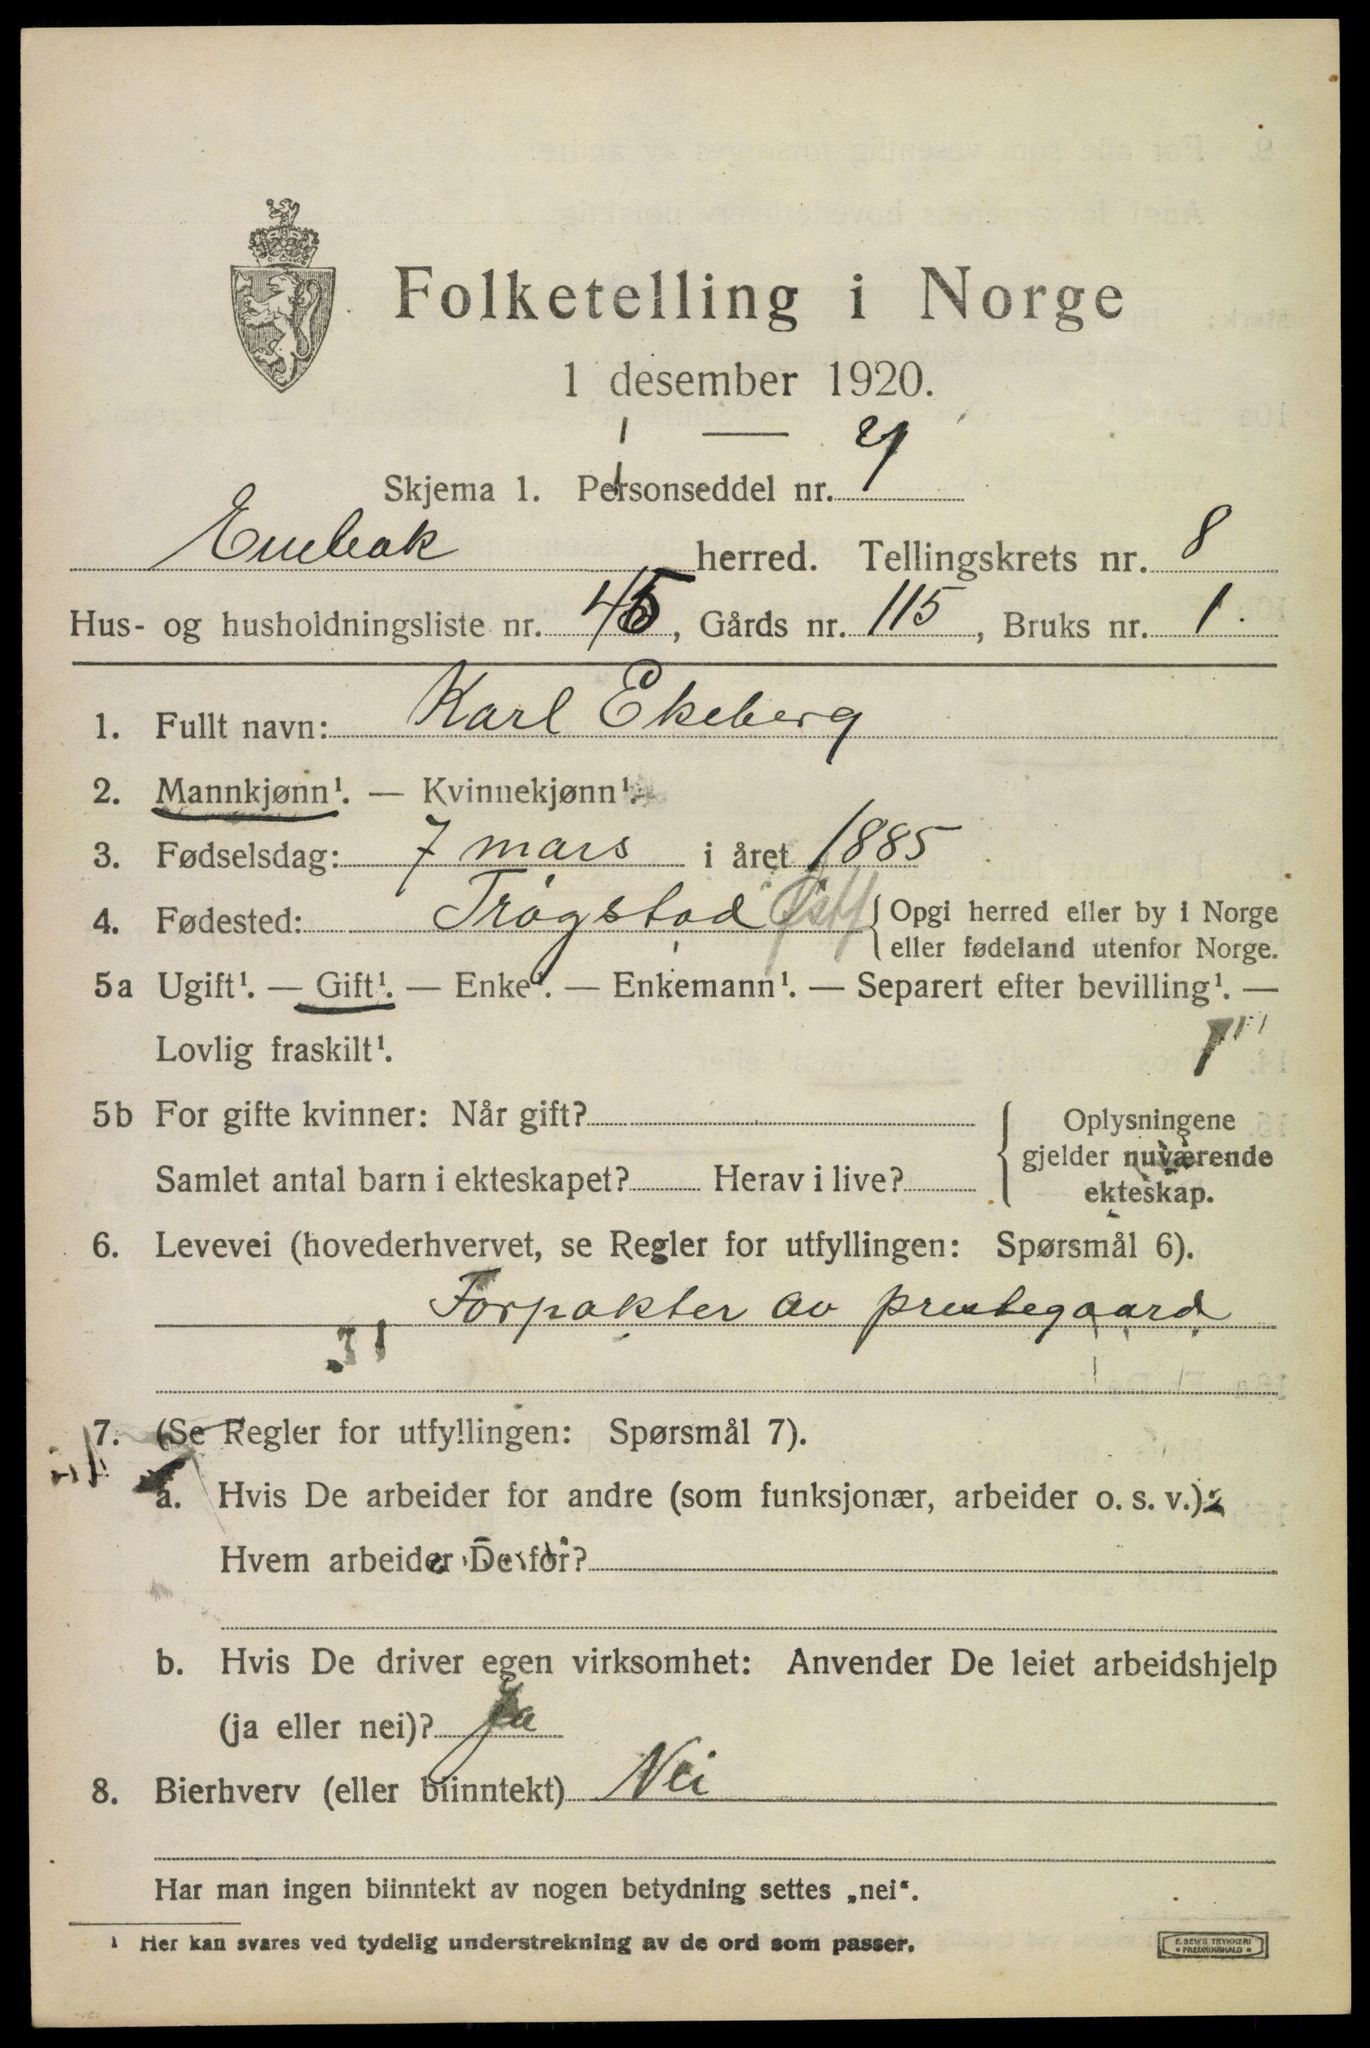 Folketelling i Norge
1 desember 1920.
Skjema 1. Personseddel nr.
Enebak herred. Tellingskrets nr. 8
Hus- og husholdningsliste nr. 45, Gårds nr. 115, Bruks nr. 1.
1. Fullt navn: Karl Ekeberg
2. Mannkjønn¹. — Kvinnekjønn¹.
3. Fødselsdag: 7 mars i året 1885
4. Fødested: Trøgstad Østf {Opgi herred eller by i Norge
eller fødeland utenfor Norge.
5a Ugift¹. — Gift¹. — Enke¹. — Enkemann¹. — Separert efter bevilling¹. —
Lovlig fraskilt¹.
5b For gifte kvinner: Når gift? { Oplysningene
gjelder nuværende
Samlet antal barn i ekteskapet? Herav i live? ekteskap.
6. Levevei (hovederhvervet, se Regler for utfyllingen: Spørsmål 6).
Forpakter av prestegaard
31
7. (Se Regler for utfyllingen: Spørsmål 7).
a. Hvis De arbeider for andre (som funksjonær, arbeider o. s. v.):
Hvem arbeider De for?
b. Hvis De driver egen virksomhet: Anvender De leiet arbeidshjelp
(ja eller nei)? Ja
8. Bierhverv (eller biinntekt) Nei
Har man ingen biinntekt av nogen betydning settes „nei“.
¹ Her kan svares ved tydelig understrekning av de ord som passer.
E. SEM'S TRYKKERI
FREDRIKSHALD